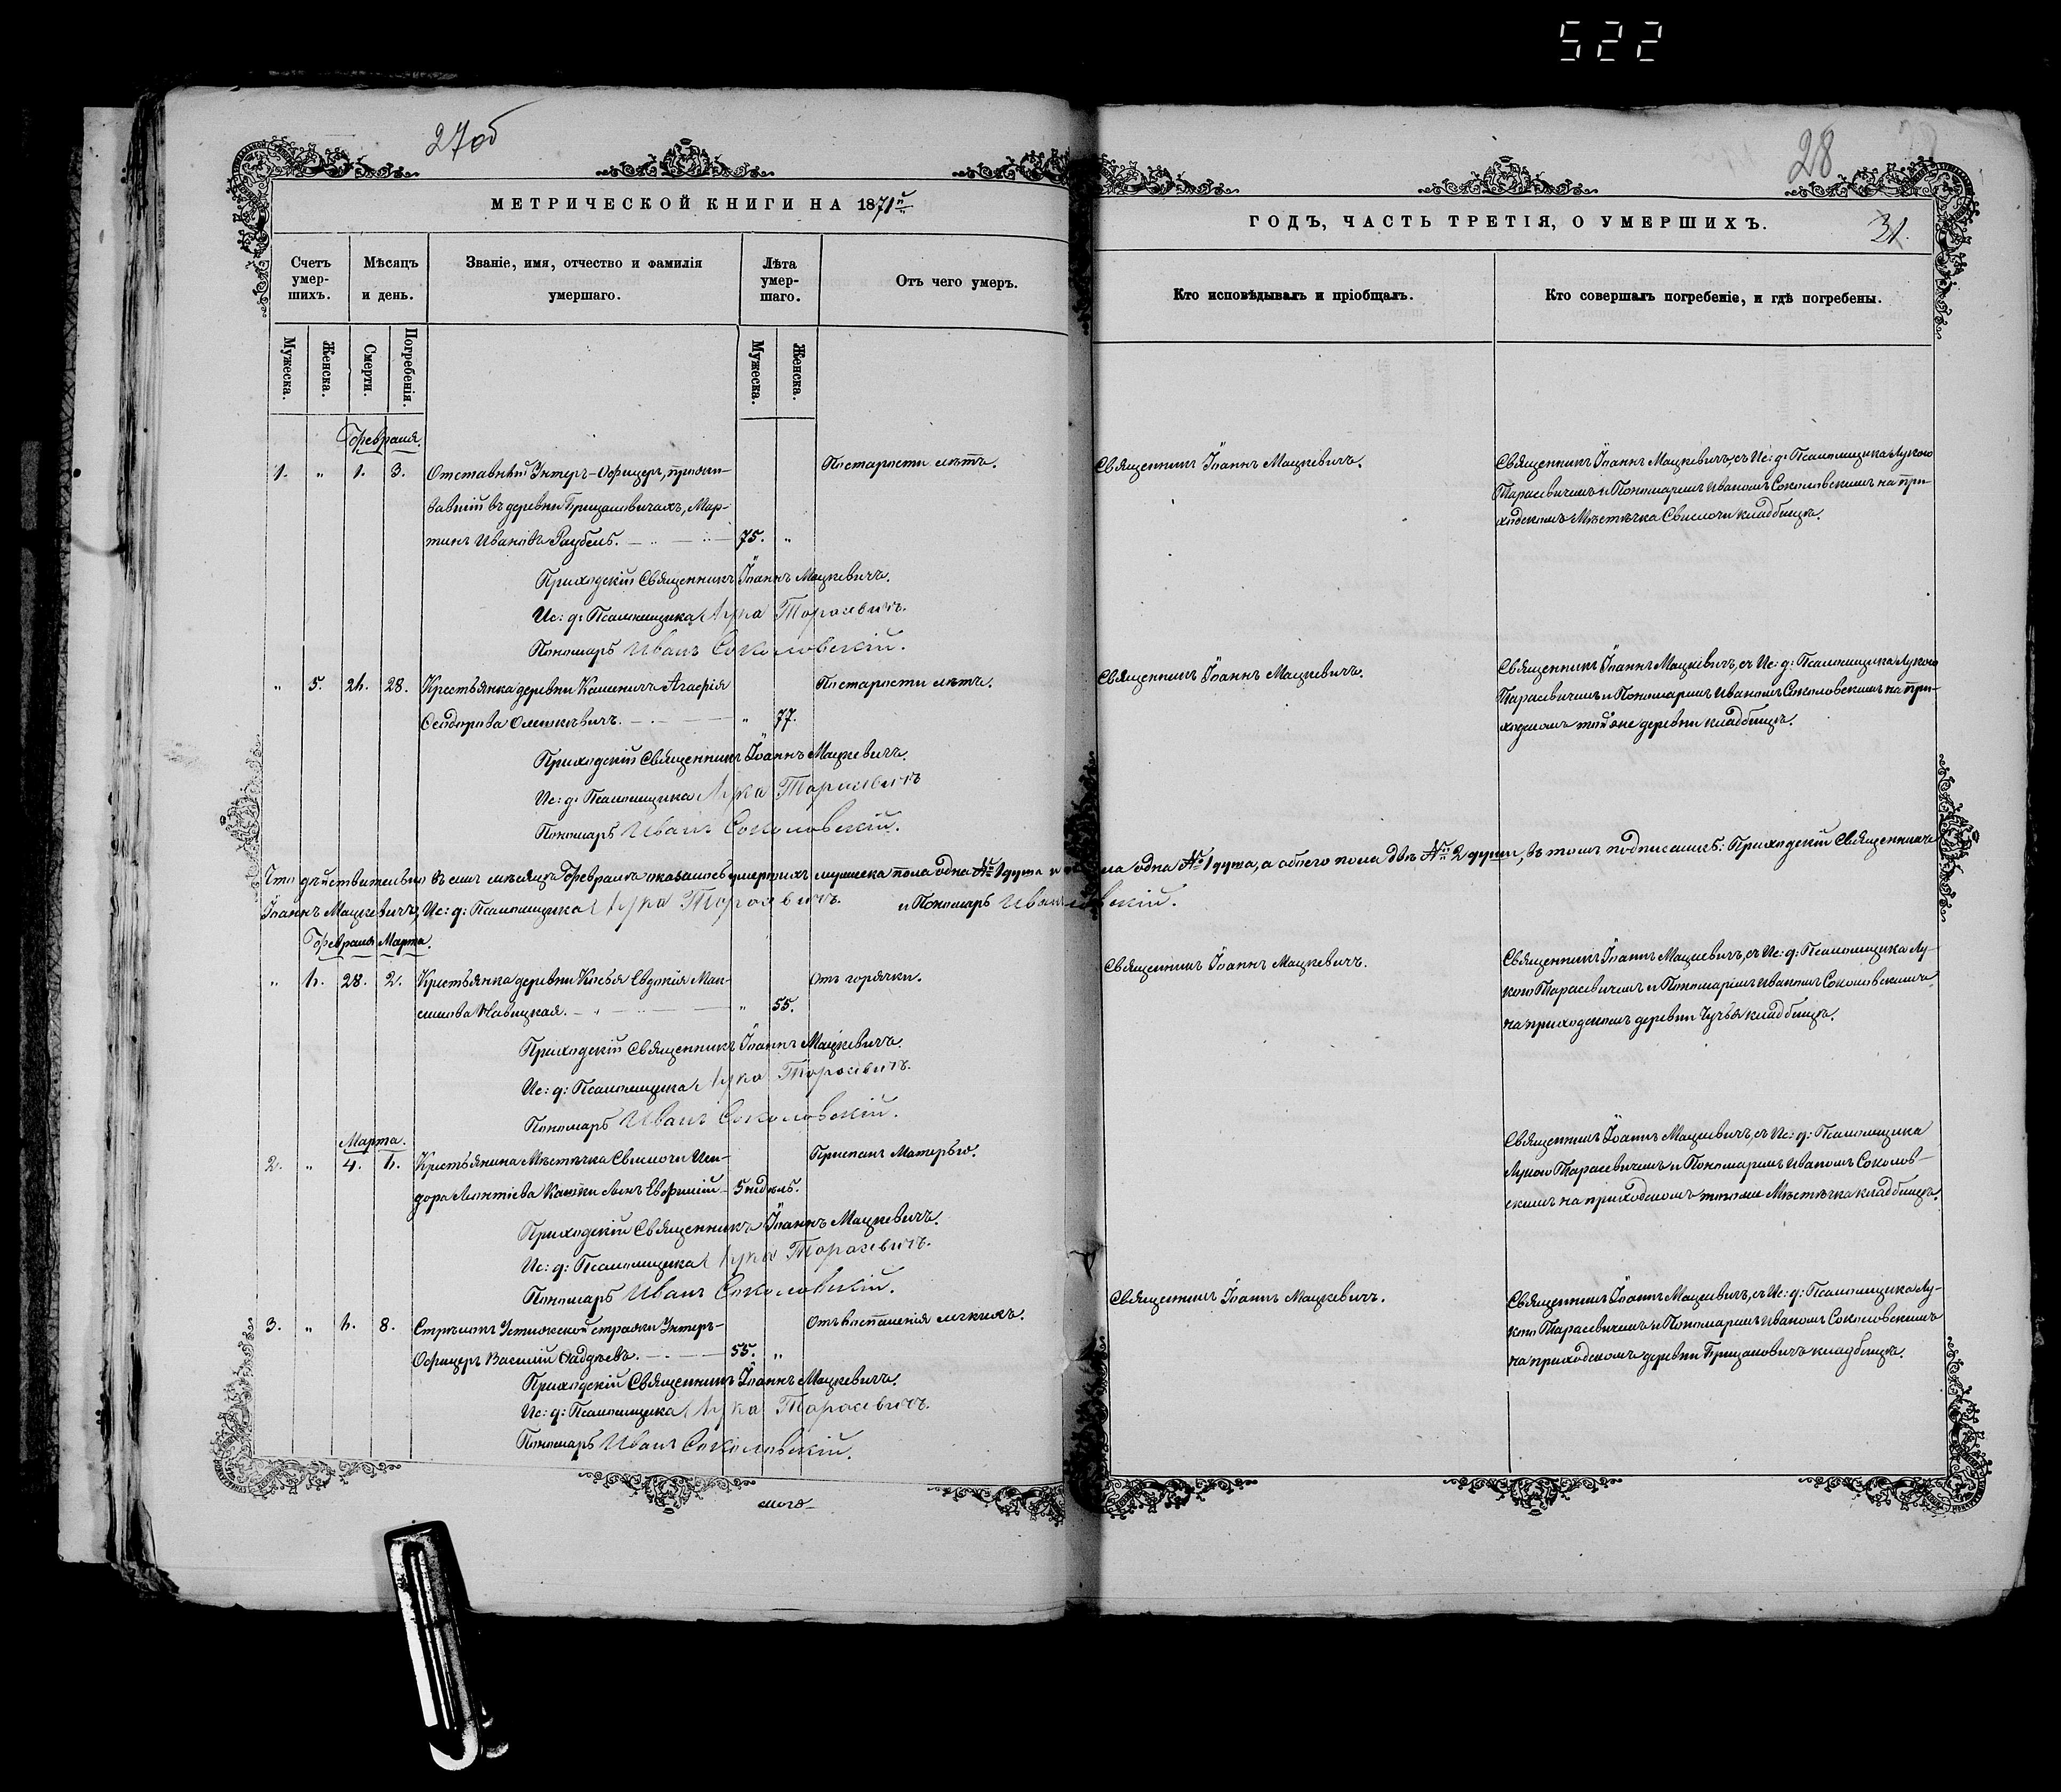 522
27об
28
МЕТРИЧЕСКОЙ КНИГИ НА 1871й
ГОДЪ, ЧАСТЬ ТРЕТІЯ, О УМЕРШИХЪ.
31.
Счетъ умер-шихъ.
Мѣсяцъ и день.
Званіе, имя, отчество и фамилія умершаго.
Лѣта умер-шаго.
Отъ чего умеръ.
Кто исповѣдывалъ и пріобщалъ.
Кто совершалъ погребеніе, и гдѣ погребены.
Мужеска.
Женска.
Смерти.
Погребенія.
Мужеска.
Женска.
Февраля.
1. „ 1. 3. Отставный Унтеръ-Офицеръ, прожи-
вавшій въ деревни Грицановичахъ, Мар-
тинъ Ивановъ 75. „
По старости лѣтъ.
Священникъ Іоаннъ Мацкевичъ.
Священникъ Іоаннъ Мацкевичъ, съ Ис: д: Псаломщика Лукою
Тарасевичемъ и Пономаремъ Иваномъ Соколовскимъ на при-
ходскомъ Мѣстечка Свислочи кладбищѣ.
Приходскій Священникъ Іоаннъ Мацкевичъ.
Ис: д: Псаломщика Лука Тарасевичъ.
Пономарь Иванъ Соколовскій.
„ 5. 24. 28. Крестьянка деревни Агафія
Ѳеодорова „ 77.
По старости лѣтъ.
Священникъ Іоаннъ Мацкевичъ.
Священникъ Іоаннъ Мацкевичъ, съ Ис: д: Псаломщика Лукою
Тарасевичемъ и Пономаремъ Иваномъ Соколовскимъ на при-
ходскомъ той же деревни кладбищѣ.
Приходскій Священникъ Іоаннъ Мацкевичъ.
Ис: д: Псаломщика Лука Тарасевичъ
Пономарь Иванъ Соколовскій.
Что дѣйствительно въ семъ мѣсяцѣ Февралѣ оказалось умершихъ мужеска пола одна № 1 душа и одна № 1 душа, а обоего пола двѣ № 2 души, въ томъ подписались: Приходскій Священникъ
Іоаннъ Мацкевичъ, Ис: д: Псаломщика Лука Тарасевичъ. и Пономарь
Февраля Марта.
„ 28. 2. Крестьянка деревни Евдокія Мак-
симова Навицкая. „ 55.
Отъ горячки.
Священникъ Іоаннъ Мацкевичъ.
Священникъ Іоаннъ Мацкевичъ, съ Ис: д: Псаломщика Лу-
кою Тарасевичемъ и Пономаремъ Иваномъ Соколовскимъ
на приходскомъ деревни кладбищѣ.
Приходскій Священникъ Іоаннъ Мацкевичъ.
Ис: д: Псаломщика Лука Тарасевичъ.
Пономарь Иванъ Соколовскій.
Марта.
2. „ 4. Крестьянина Мѣстечка Свислочи Иси-
дора сынъ Евфимій 5 недѣль.
Приспанъ Матерью.
Священникъ Іоаннъ Мацкевичъ, съ Ис: д: Псаломщика
Лукою Тарасевичемъ и Пономаремъ Иваномъ Соколов-
скимъ на приходскомъ Мѣстечка кладбищѣ.
Приходскій Священникъ Іоаннъ Мацкевичъ.
Ис: д: Псаломщика Лука Тарасевичъ.
Пономарь Иванъ Соколовскій.
3. „ 8. Стрѣлокъ стражи Унтеръ-
Офицеръ Василій Ѳадѣевъ. 55. „
Отъ воспаленія легкихъ.
Священникъ Іоаннъ Мацкевичъ.
Священникъ Іоаннъ Мацкевичъ, съ Ис: д: Псаломщика Лу-
кою Тарасевичемъ и Пономаремъ Иваномъ Соколовскимъ
на приходскомъ деревни Грицановичъ кладбищѣ.
Приходскій Священникъ Іоаннъ Мацкевичъ.
Ис: д: Псаломщика Лука Тарасевичъ.
Пономарь Иванъ Соколовскій.